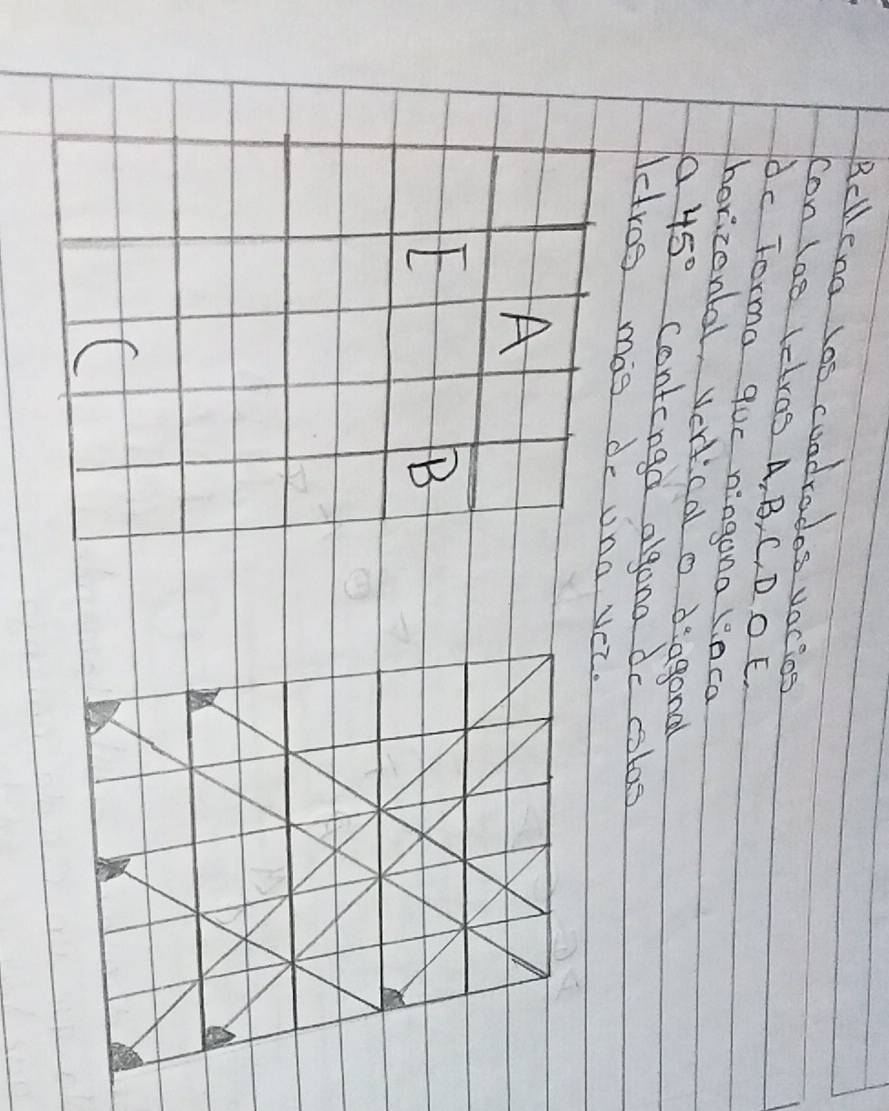 Rellena los cuadrados vacios
Con las letras A, B, C, D O E.
de forma que ninguna linea
horizontal, vertical o diagonal
a 45° Contenga alguna de estas
letras más de una vez.
A
E B
C